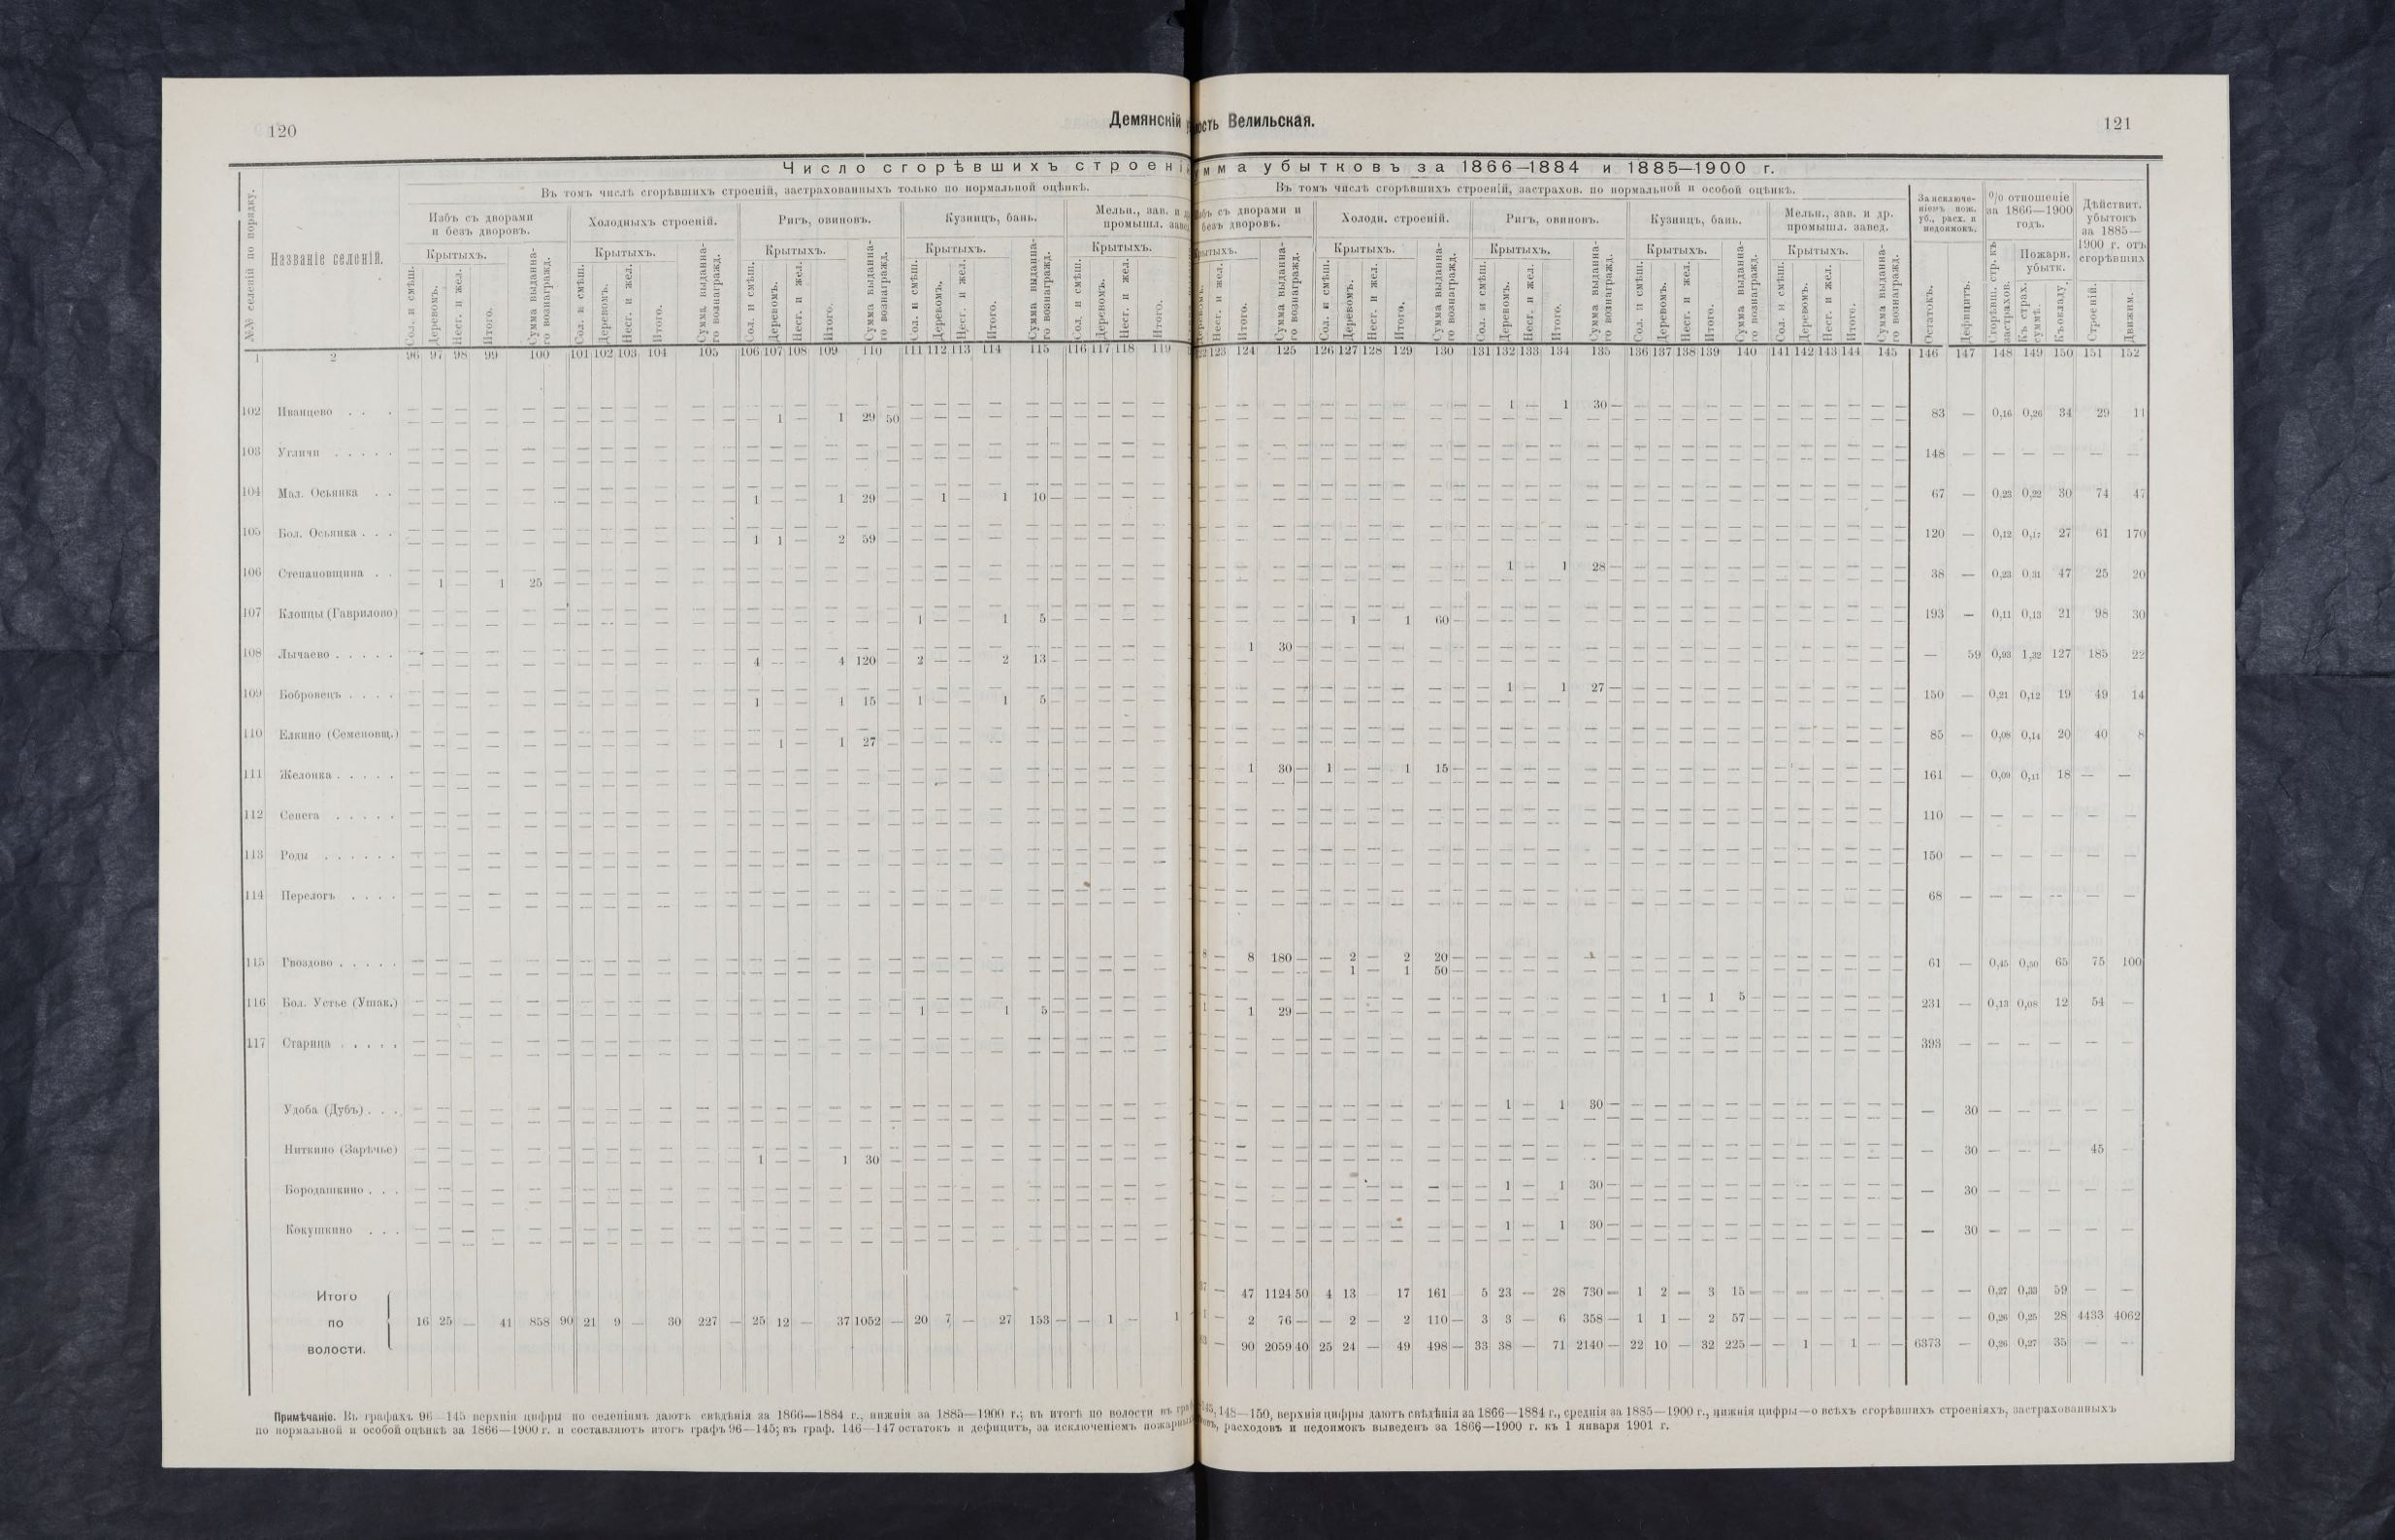 120
Демянскій
ость Велильская.
121
Число сгорѣвшихъ строені
мма убытковъ за 1866—1884 и 1885—1900 г.
№№ селеній по порядку.
Названіе селеній.
Въ томъ числѣ сгорѣвшихъ строеній, застрахованныхъ только по нормальной оцѣнкѣ.
Въ томъ числѣ сгорѣвшихъ строеній, застрахов. по нормальной и особой оцѣнкѣ.
Избъ съ дворами и безъ дворовъ. Холодныхъ строеній. Ригъ, овиновъ. Кузницъ, бань. Мельн., зав. и промышл.
съ дворами и безъ дворовъ. Холодн. строеній. Ригъ, овиновъ. Кузницъ, бань. Мельн., зав. и др. промышл. завед.
За исключеніемъ пож. уб., расх. и недоимокъ.
% отношеніе за 1866—1900 годъ.
Дѣйствит. убытокъ за 1885—1900 г. отъ сгорѣвшихъ
Крытыхъ. Крытыхъ. Крытыхъ. Крытыхъ. Крытыхъ.
Крытыхъ. Крытыхъ. Крытыхъ. Крытыхъ.
Пожарн. убытк.
Сол. и смѣш. Деревомъ. Несг. и жел. Итого. Сумма выданнаго вознагражд.
Остатокъ. Дефицитъ. Сгорѣвш. стр. къ застрахов. Къ страх. суммѣ. Къ окладу. Строеній. Движим.
1 2 96 97 98 99 100 101 102 103 104 105 106 107 108 109 110 111 112 113 114 115 116 117 118 119
123 124 125 126 127 128 129 130 131 132 133 134 135 136 137 138 139 140 141 142 143 144 145 146 147 148 149 150 151 152
102 Иванцево . . . 1 — 1 29 50 1 — 1 30 — 83 — 0,16 0,26 34 29 11
103 Угличи . . . . . 148 — — — — — —
104 Мал. Осьянка . . 1 — — 1 29 — — 1 — 1 10 — 67 — 0,23 0,22 30 74 47
105 Бол. Осьянка . . . 1 1 — 2 59 — 120 — 0,12 0,17 27 61 170
106 Степановщина . . — 1 — 1 25 — 1 — 1 28 — 38 — 0,23 0,31 47 25 20
107 Клопцы (Гаврилово) 1 — — 1 5 — 1 — 1 60 — 193 — 0,11 0,13 21 98 30
108 Лычаево . . . . . 4 — — 4 120 — 2 — — 2 13 — 1 30 — — 59 0,93 1,32 127 185 22
109 Бобровецъ . . . . 1 — — 1 15 — 1 — — 1 5 — 1 — 1 27 — 150 — 0,21 0,12 19 49 14
110 Елкино (Семеновщ.) 1 — 1 27 — 85 — 0,08 0,14 20 40 8
111 Желонка . . . . . 1 30 — 1 — — 1 15 — 161 — 0,09 0,11 18 — —
112 Сенега . . . . . 110 — — — — — —
113 Роды . . . . . . 150 — — — — — —
114 Перелогъ . . . . 68 — — — — — —
115 Гвоздово . . . . . 8 — 8 180 — — 2 — 2 20 — 61 — 0,45 0,50 65 75 100
1 — 1 50 —
116 Бол. Устье (Ушак.) 1 — — 1 5 — 1 — 1 29 — 1 — 1 5 — 231 — 0,13 0,08 12 54 —
117 Старица . . . . . 393 — — — — — —
Удоба (Дубъ) . . . 1 — 1 30 — — 30 — — — — —
Ниткино (Зарѣчье) 1 — — 1 30 — — 30 — — — 45 —
Бородашкино . . . 1 — 1 30 — — 30 — — — — —
Кокушкино . . . 1 — 1 30 — — 30 — — — — —
Итого 47 1124 50 4 13 17 161 5 23 — 28 730 — 1 2 — 3 15 — — — — — — — — — 0,27 0,33 59 — —
по 16 25 — 41 858 90 21 9 — 30 227 — 25 12 — 37 1052 — 20 7 — 27 153 — — 1 — 1 2 76 — — 2 — 2 110 — 3 3 — 6 358 — 1 1 — 2 57 — — — — — — — — — 0,26 0,25 28 4433 4062
волости. — 90 2059 40 25 24 — 49 498 — 33 38 — 71 2140 — 22 10 — 32 225 — — 1 — 1 — — 6373 — 0,26 0,27 35 — —
Примѣчаніе. Въ графахъ 96—145 верхнія цифры по селеніямъ даютъ свѣдѣнія за 1866—1884 г., нижнія за 1885—1900 г.; въ итогѣ по волости въ гра 145, 148—150, верхнія цифры даютъ свѣдѣнія за 1866—1884 г., среднія за 1885—1900 г., нижнія цифры—о всѣхъ сгорѣвшихъ строеніяхъ, застрахованныхъ
по нормальной и особой оцѣнкѣ за 1866—1900 г. и составляютъ итогъ графъ 96—145; въ граф. 146—147 остатокъ и дефицитъ, за исключеніемъ пожарны овъ, расходовъ и недоимокъ выведенъ за 1866—1900 г. къ 1 января 1901 г.